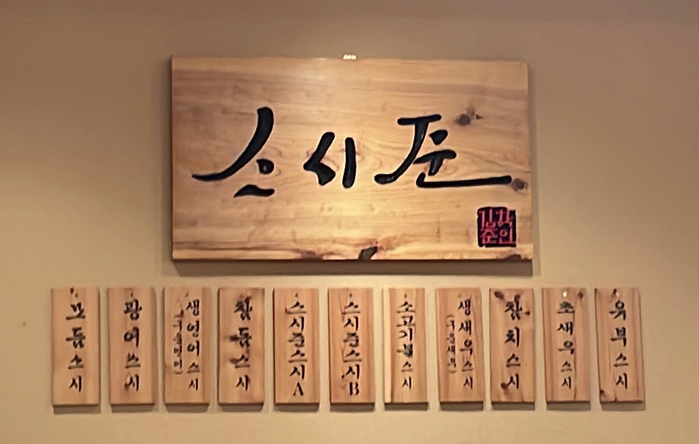 스시준
모듬스시
광어스시
생연어스시
참돔스시
스시준스시A
스시준스시B
소고기불스시
생새우스시
참치스시
초새우스시
유부스시